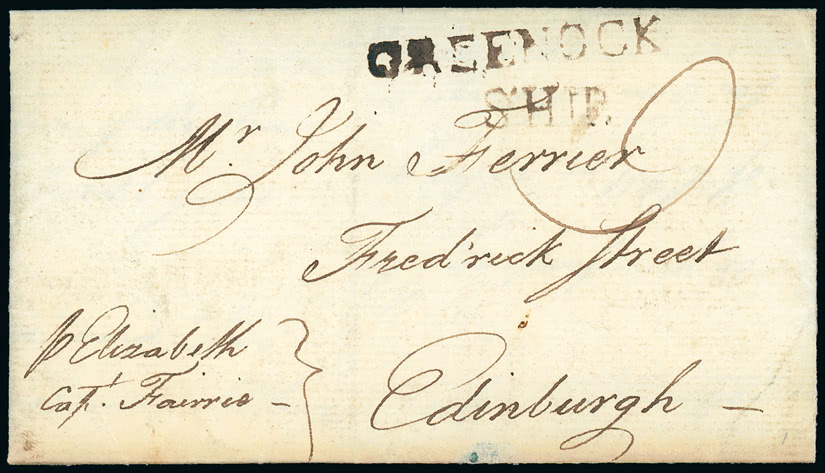 GREENOCK
SHIP
Mr. John Ferrier
Fred'rick Street
Edinburgh
p Elizabeth
Capt. Fairrie